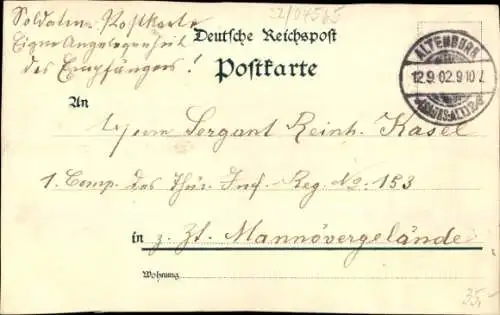 Soldaten-Postkarte
Eigne Angelegenheit
des Empfängers!
22/04565
Deutsche Reichspost
Postkarte
ALTENBURG
12.9.02.9-10V.
An
Herrn Sergant Reinh. Kasel
1. Comp. des Thür. Inf. Reg. No. 153
in z. Zt. Mannövergelände
Wohnung
35,-